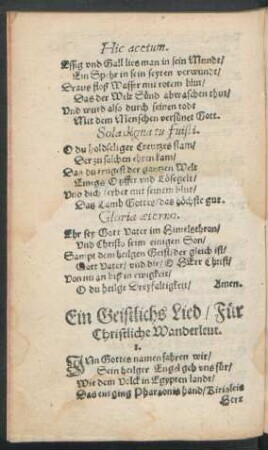 Hic acetum.
Essig vnd Gall lies man in sein Munde/
Ein Sp[...]hr in sein seyten verwundt/
Draus floß Wasser mit rotem blut/
Das der Welt Sünd abwaschen thut/
Vnd würd also durch seinen todt
Mit dem Menschen versünet Gott.
Sola digna tu fuisti.
O du holdseliger Creutzes stam/
Der zu solchen ehren kam/
Das du trugest der gantzen Welt
Einigs Opffer vnd Lösegelt/
Vnd dich ferbet mit seinem blut/
Das Lamb Gottes/ das höchste gut.
Gloria æterno.
Ehr sey Gott Vater im Himelthron/
Vnd Christo seim einigen Son/
Sampt dem heilgen Geist/ der gleich ist/
Gott Vater/ vnd dir/ O HErr Christ/
Von nu an biß in ewigkeit/
O du heilge Dreyfaltigkeit/ Amen.
Ein Geistlichs Lied/ Für
Christliche Wanderleut.
1.
IN Gottes namen fahren wir/
Sein heilger Engel geh vns für/
Wie dem Volck in Egypten landt/
Das entging Pharaonis hand/ Kirioleis
Herr